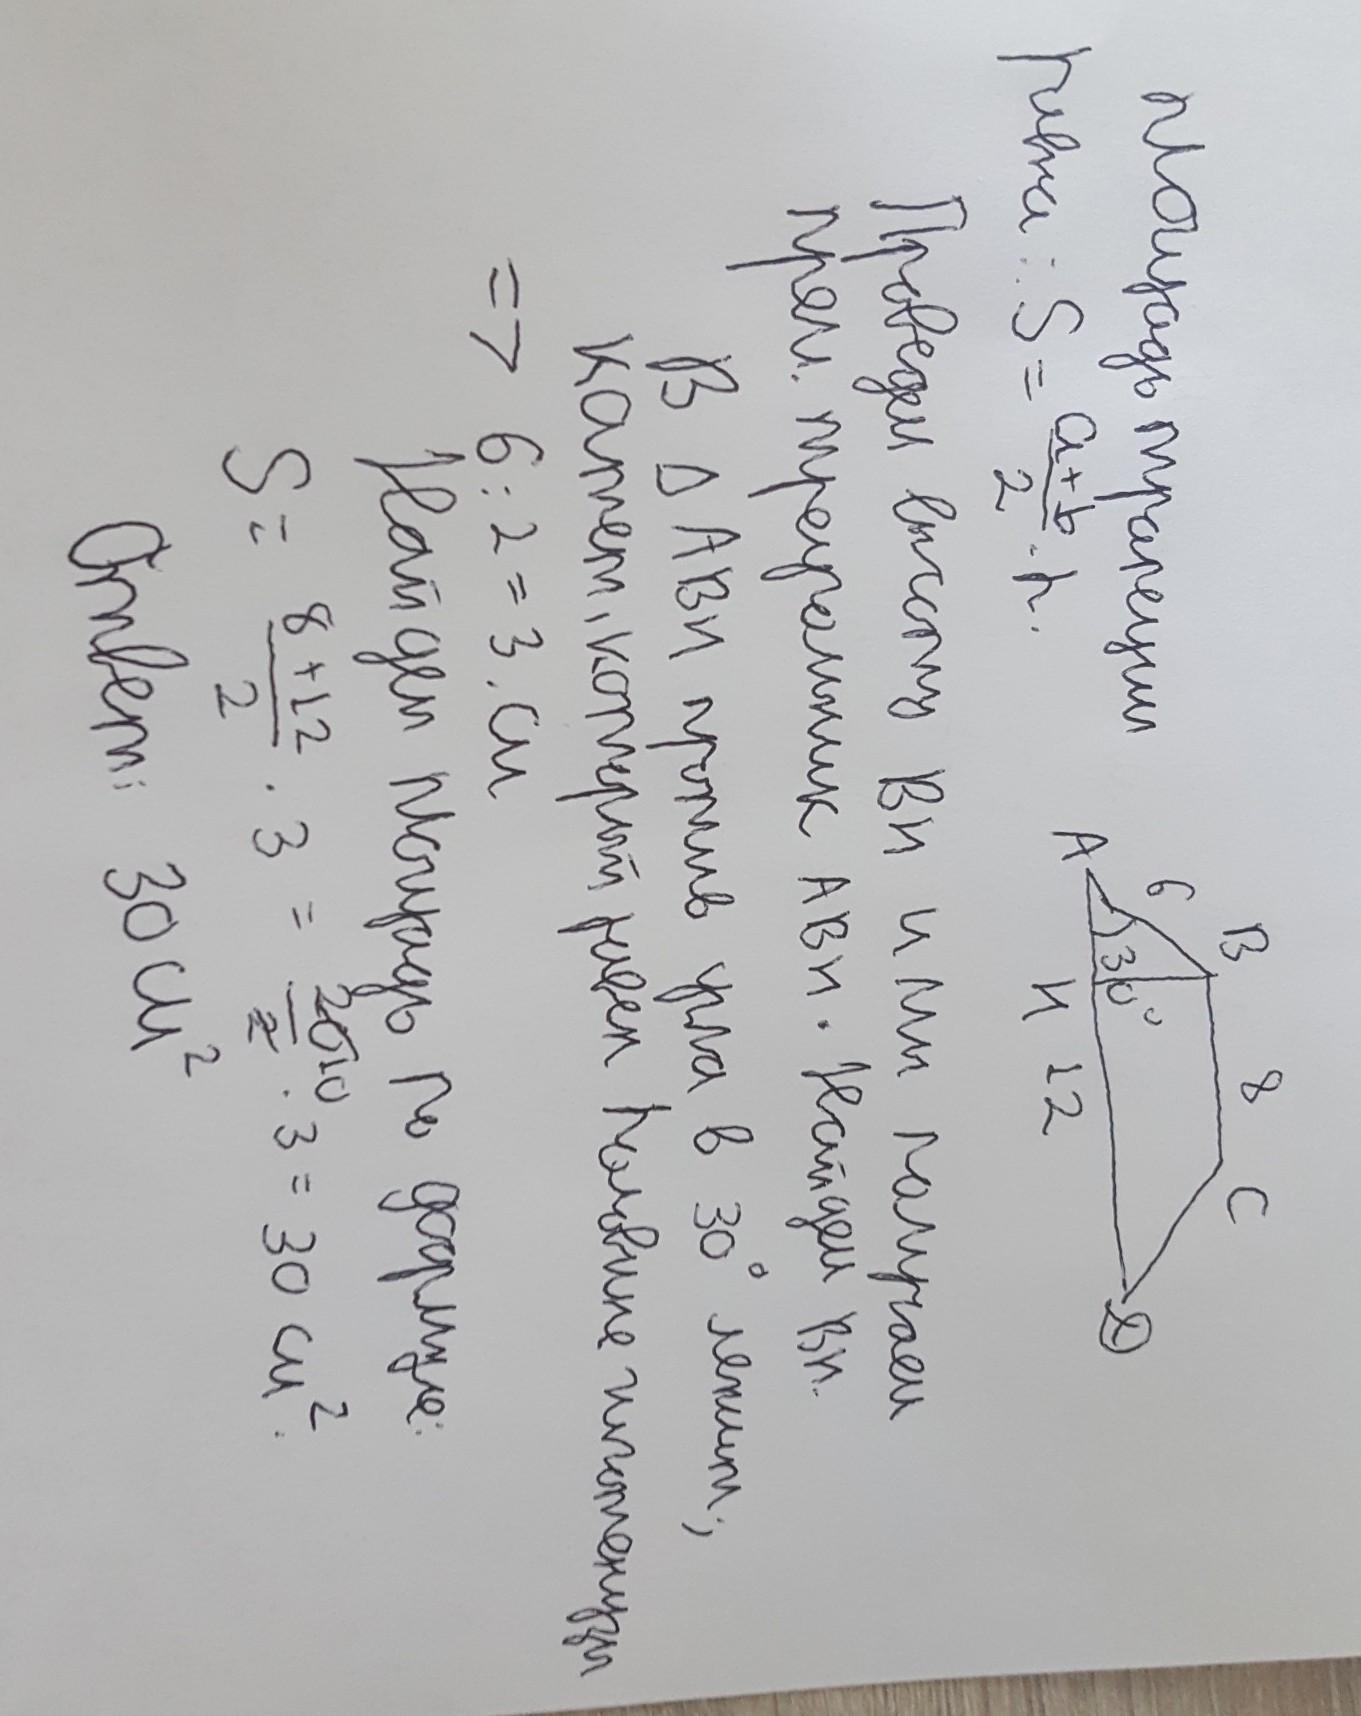 площадь трапеции
равна : S = a+b/2 · h.
A 6 B 8 C D
30°
H 12
Проведем высоту BH и мы получаем
прям. треугольник ABH. Найдем BH.
В Δ ABH против угла в 30° лежит,
катет, который равен половине гипотенузы
=> 6:2=3.см
Найдем площадь по формуле:
S= 8+12/2 · 3 = 20 10/2 · 3 = 30 см².
Ответ: 30 см²